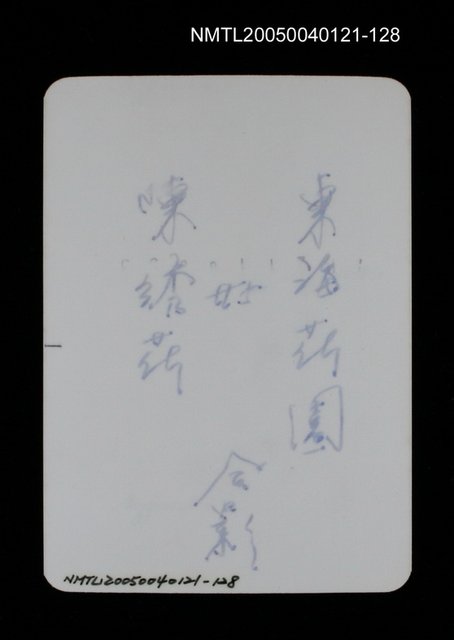 NMTL20050040121-128
東海花園
陳綉花
合影
NMTL20050040121-128